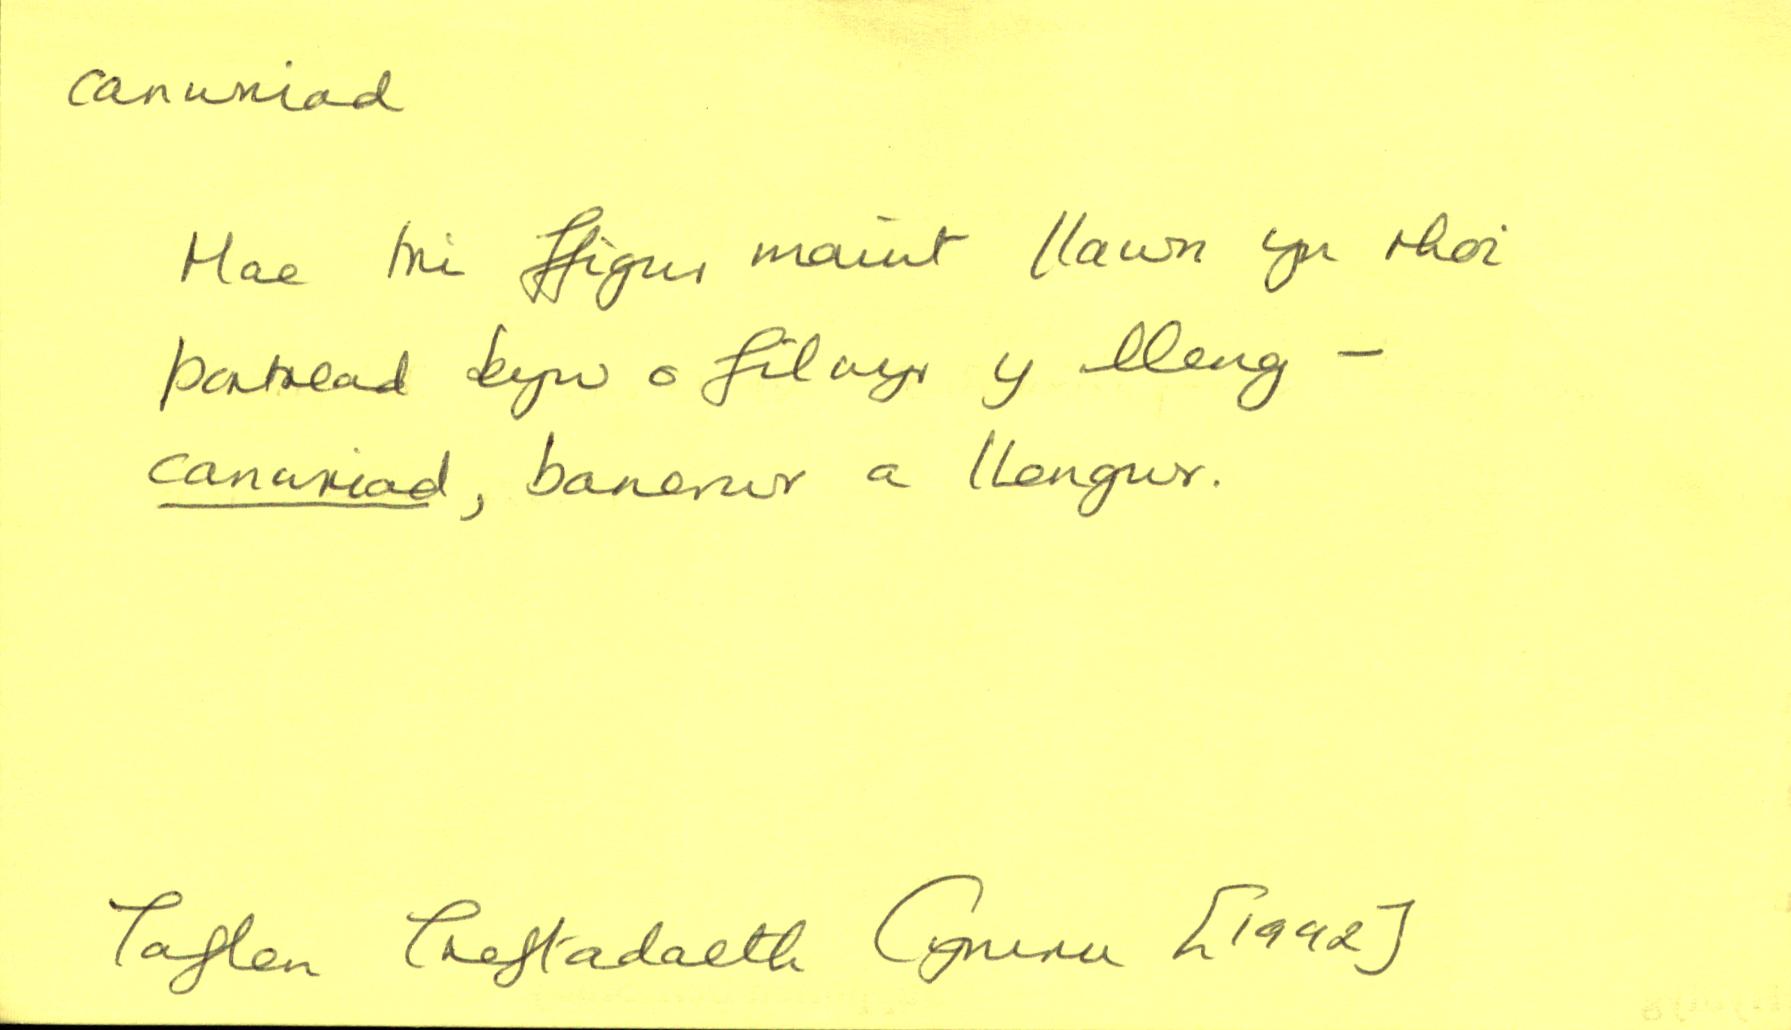 canwriad
Mae tri ffigwr maint llawn yn rhoi
portread byw o filwyr y lleng –
canwriad, banerwr a llengwr.
Taflen Treftadaeth Cymru [1992]